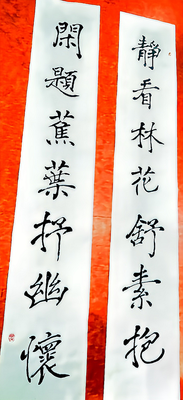 靜看林花舒素抱
閑題蕉葉抒幽懷